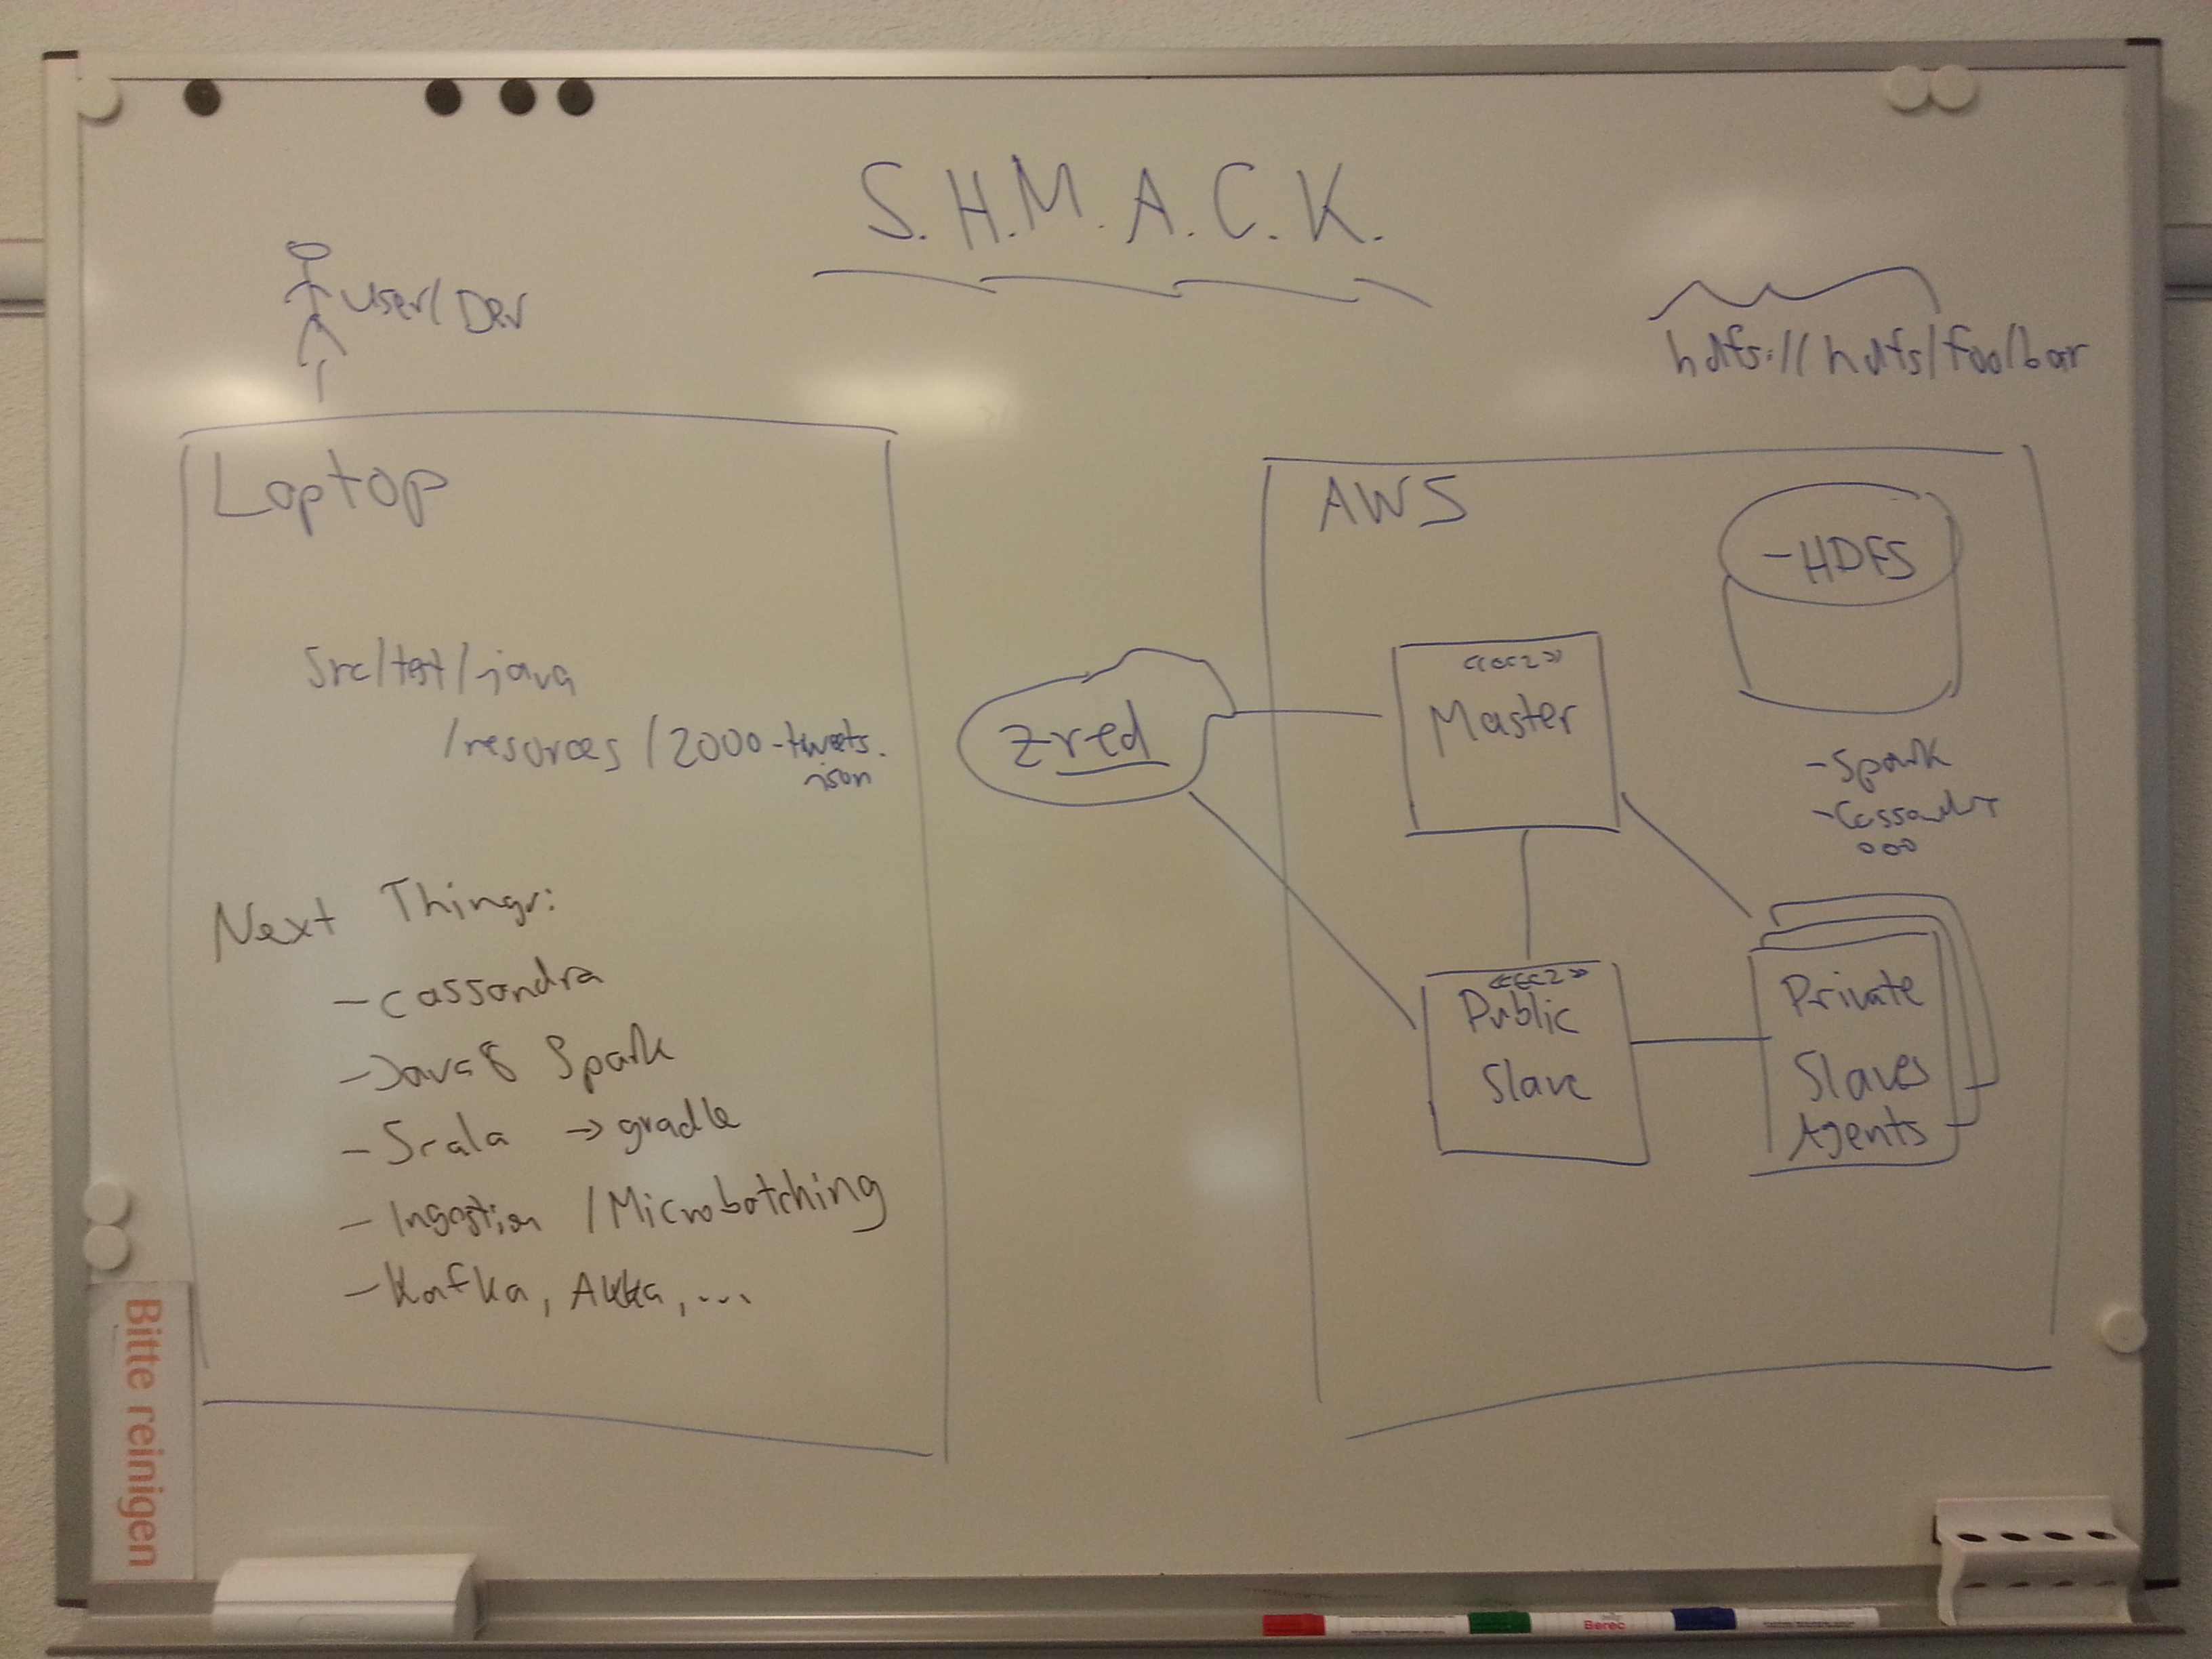 S.H.M.A.C.K.
User/Dev
hdfs://hdfs/foo/bar
Laptop
src/test/java
/resorces/2000-tweets.
json
Next Things:
- Cassandra
- Java 8 Spark
- Scala -> gradle
- Ingestion / Microbatching
- Kafka, Akka, ...
zred
AWS
- HDFS
- Spark
- Cassandra
ooo
<<ec2>>
Master
<<ec2>>
Public
Slave
Private
Slaves
Agents
Bitte reinigen
Berec